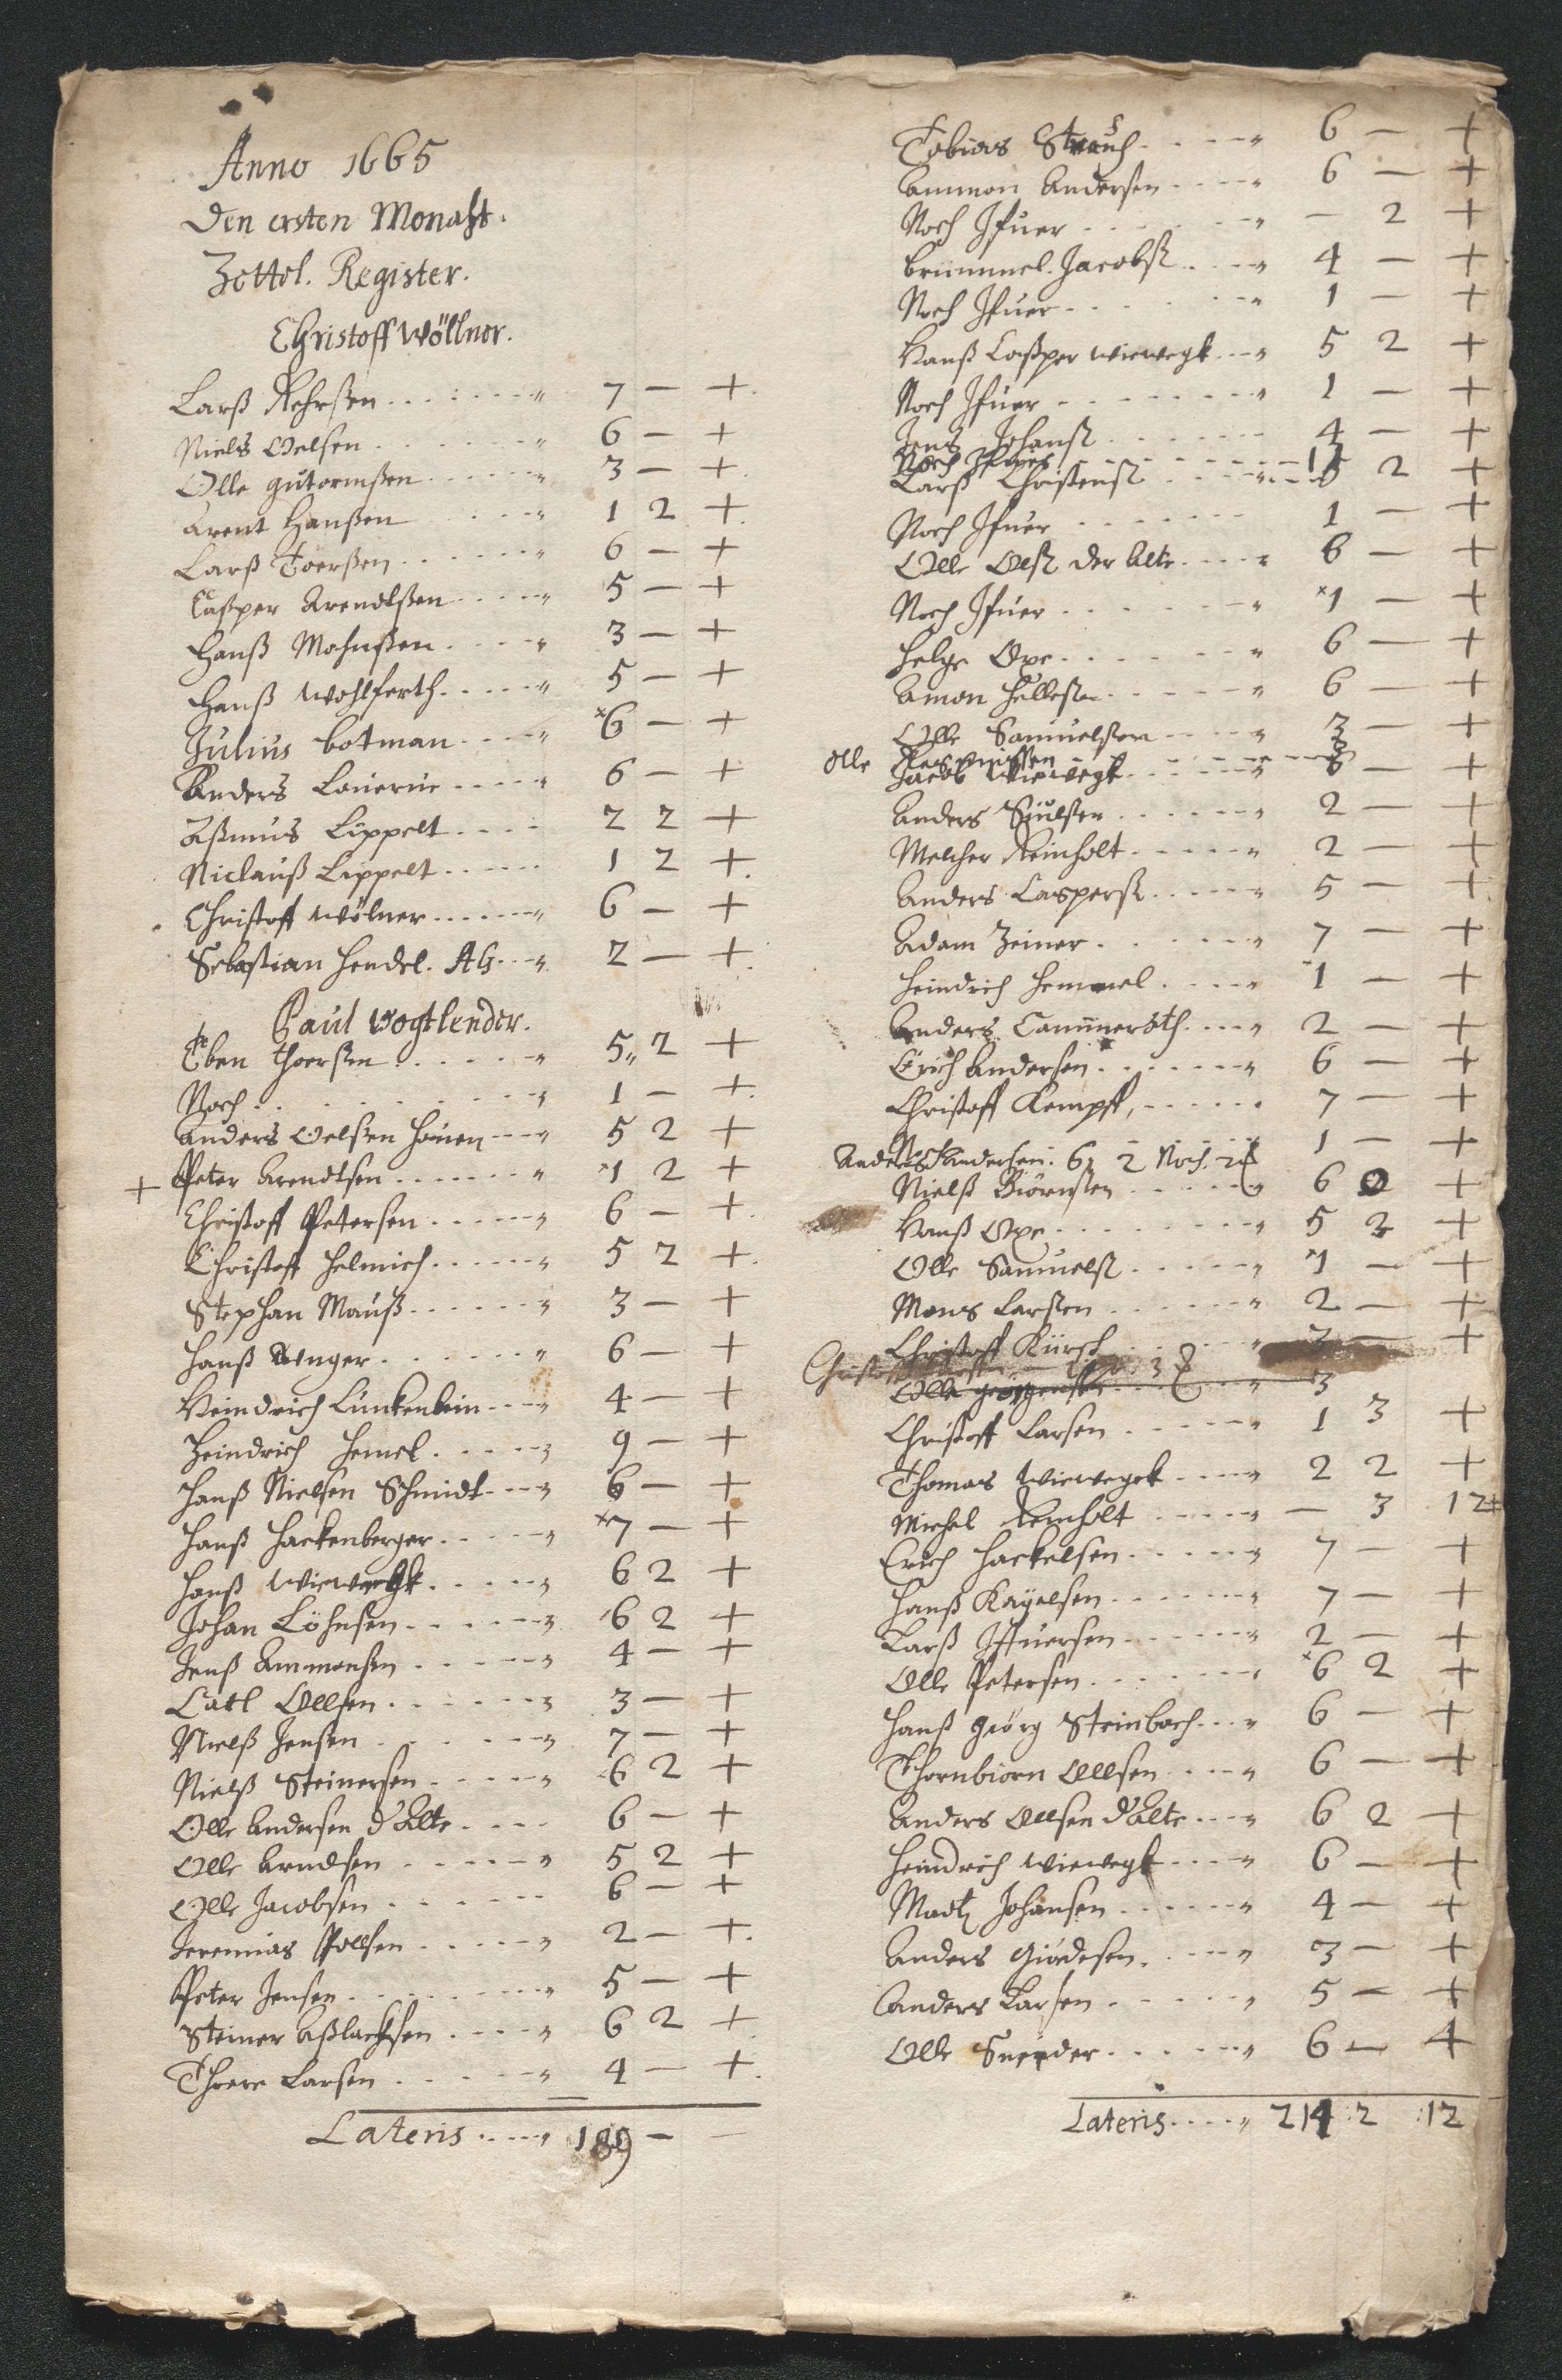 Anno 1665
Den ersten Monaht.
Zettel. Register.
Christoff Wöllner.
Larß Rehrßen 7 — +
Niels Oelsen 6 — +
Olle gutormßen 3 — +
Arent Hanßen 1 2 +
Larß Toerßen 6 — +
Caßper Arendtßen 5 — +
Hanß Mohnßen 3 — +
Hanß Wohlferth 5 — +
Julius botman 6 — +
Anders 6 — +
Aßmus Lippelt 2 2 +
Niclauß Lippelt 1 2 +
Christoff Wölner 6 — +
Sebastian Hendel. 2 — +
Paul Vogtlender.
Eben Thoerßen 5 2 +
Noch 1 — +
Anders Oelßen 5 2 +
+ Peter Arendtsen 1 2 +
Christoff Petersen 6 — +
Christoff Helmich 5 2 +
Stephan Mauß 3 — +
Hanß Unger 6 — +
Heindrich Linckenbein 4 — +
Heindrich Hemel 9 — +
Hanß Nielsen Schmidt 6 — +
Hanß Hackenberger 7 — +
Hanß Wiewegk 6 2 +
Johan Löhnsen 6 2 +
Jenß Ammonsen 4 — +
Catl Ollsen 3 — +
Nielß Jensen 7 — +
Nielß Steinersen 6 2 +
Olle Andersen d Alte 6 — +
Olle Arndsen 5 2 +
Olle Jacobsen 6 — +
Jeremias Pollsen 2 — +
Peter Jensen 5 — +
Steiner Aßlachsen 6 2 +
Thore Larsen 4 — +
Lateris 189 — —
Tobias Strauch 6 — +
Ammon Andersen 6 — +
Noch Ifuer — 2 +
brümmel Jacobß 4 — +
Noch Ifuer 1 — +
Hanß Caßper wiewegk 5 2 +
Noch Ifuer 1 — +
Jens Johanß 4 — +
Noch 1
Larß Christenß 2 +
Noch Ifuer 1 — +
Olle Olß der Alte 6 — +
Noch Ifuer 1 — +
Helge Ope 6 — +
Amon Hellesen 6 — +
Olle Samuelsen 3 — +
Olle
Jacob Wiewegk 6 — +
Anders 2 — +
Melcher Reinholt 2 — +
Anders Casperß 5 — +
Adam Zeiner 7 — +
Heindrich Hemmel 1 — +
Anders Cammeroth 2 — +
Erich Andersen 6 — +
Christoff Kempff 7 — +
1 — +
Anders Andersen. 6 2 Noch
Nielß Biörnsten 6 +
Hanß Ope 5 2 +
Olle Samuelß 1 — +
Mons Larsten 2 — +
Christoff Kürsch 3 — +
Christoff 3
Olle 3
Christoff Larsen 1 3 +
Thomas Wiewegek 2 2 +
Michel Reinholt — 3 12
Erich Hackelsen 7 — +
Hanß Kayelsen 7 — +
Larß Iffuersen 2 — +
Olle Petersen 6 2 +
Hanß Giörg Steinbach 6 — +
Thornbiorn Ollsen 6 — +
Anders Ollsen d Alte 6 2 +
Heindrich Wiewegk 6 — +
Madtz Johansen 4 — +
Anders Giordesen 3 — +
Anders Larsen 5 — +
Olle Sneider 6 — +
Lateris 214 2 12